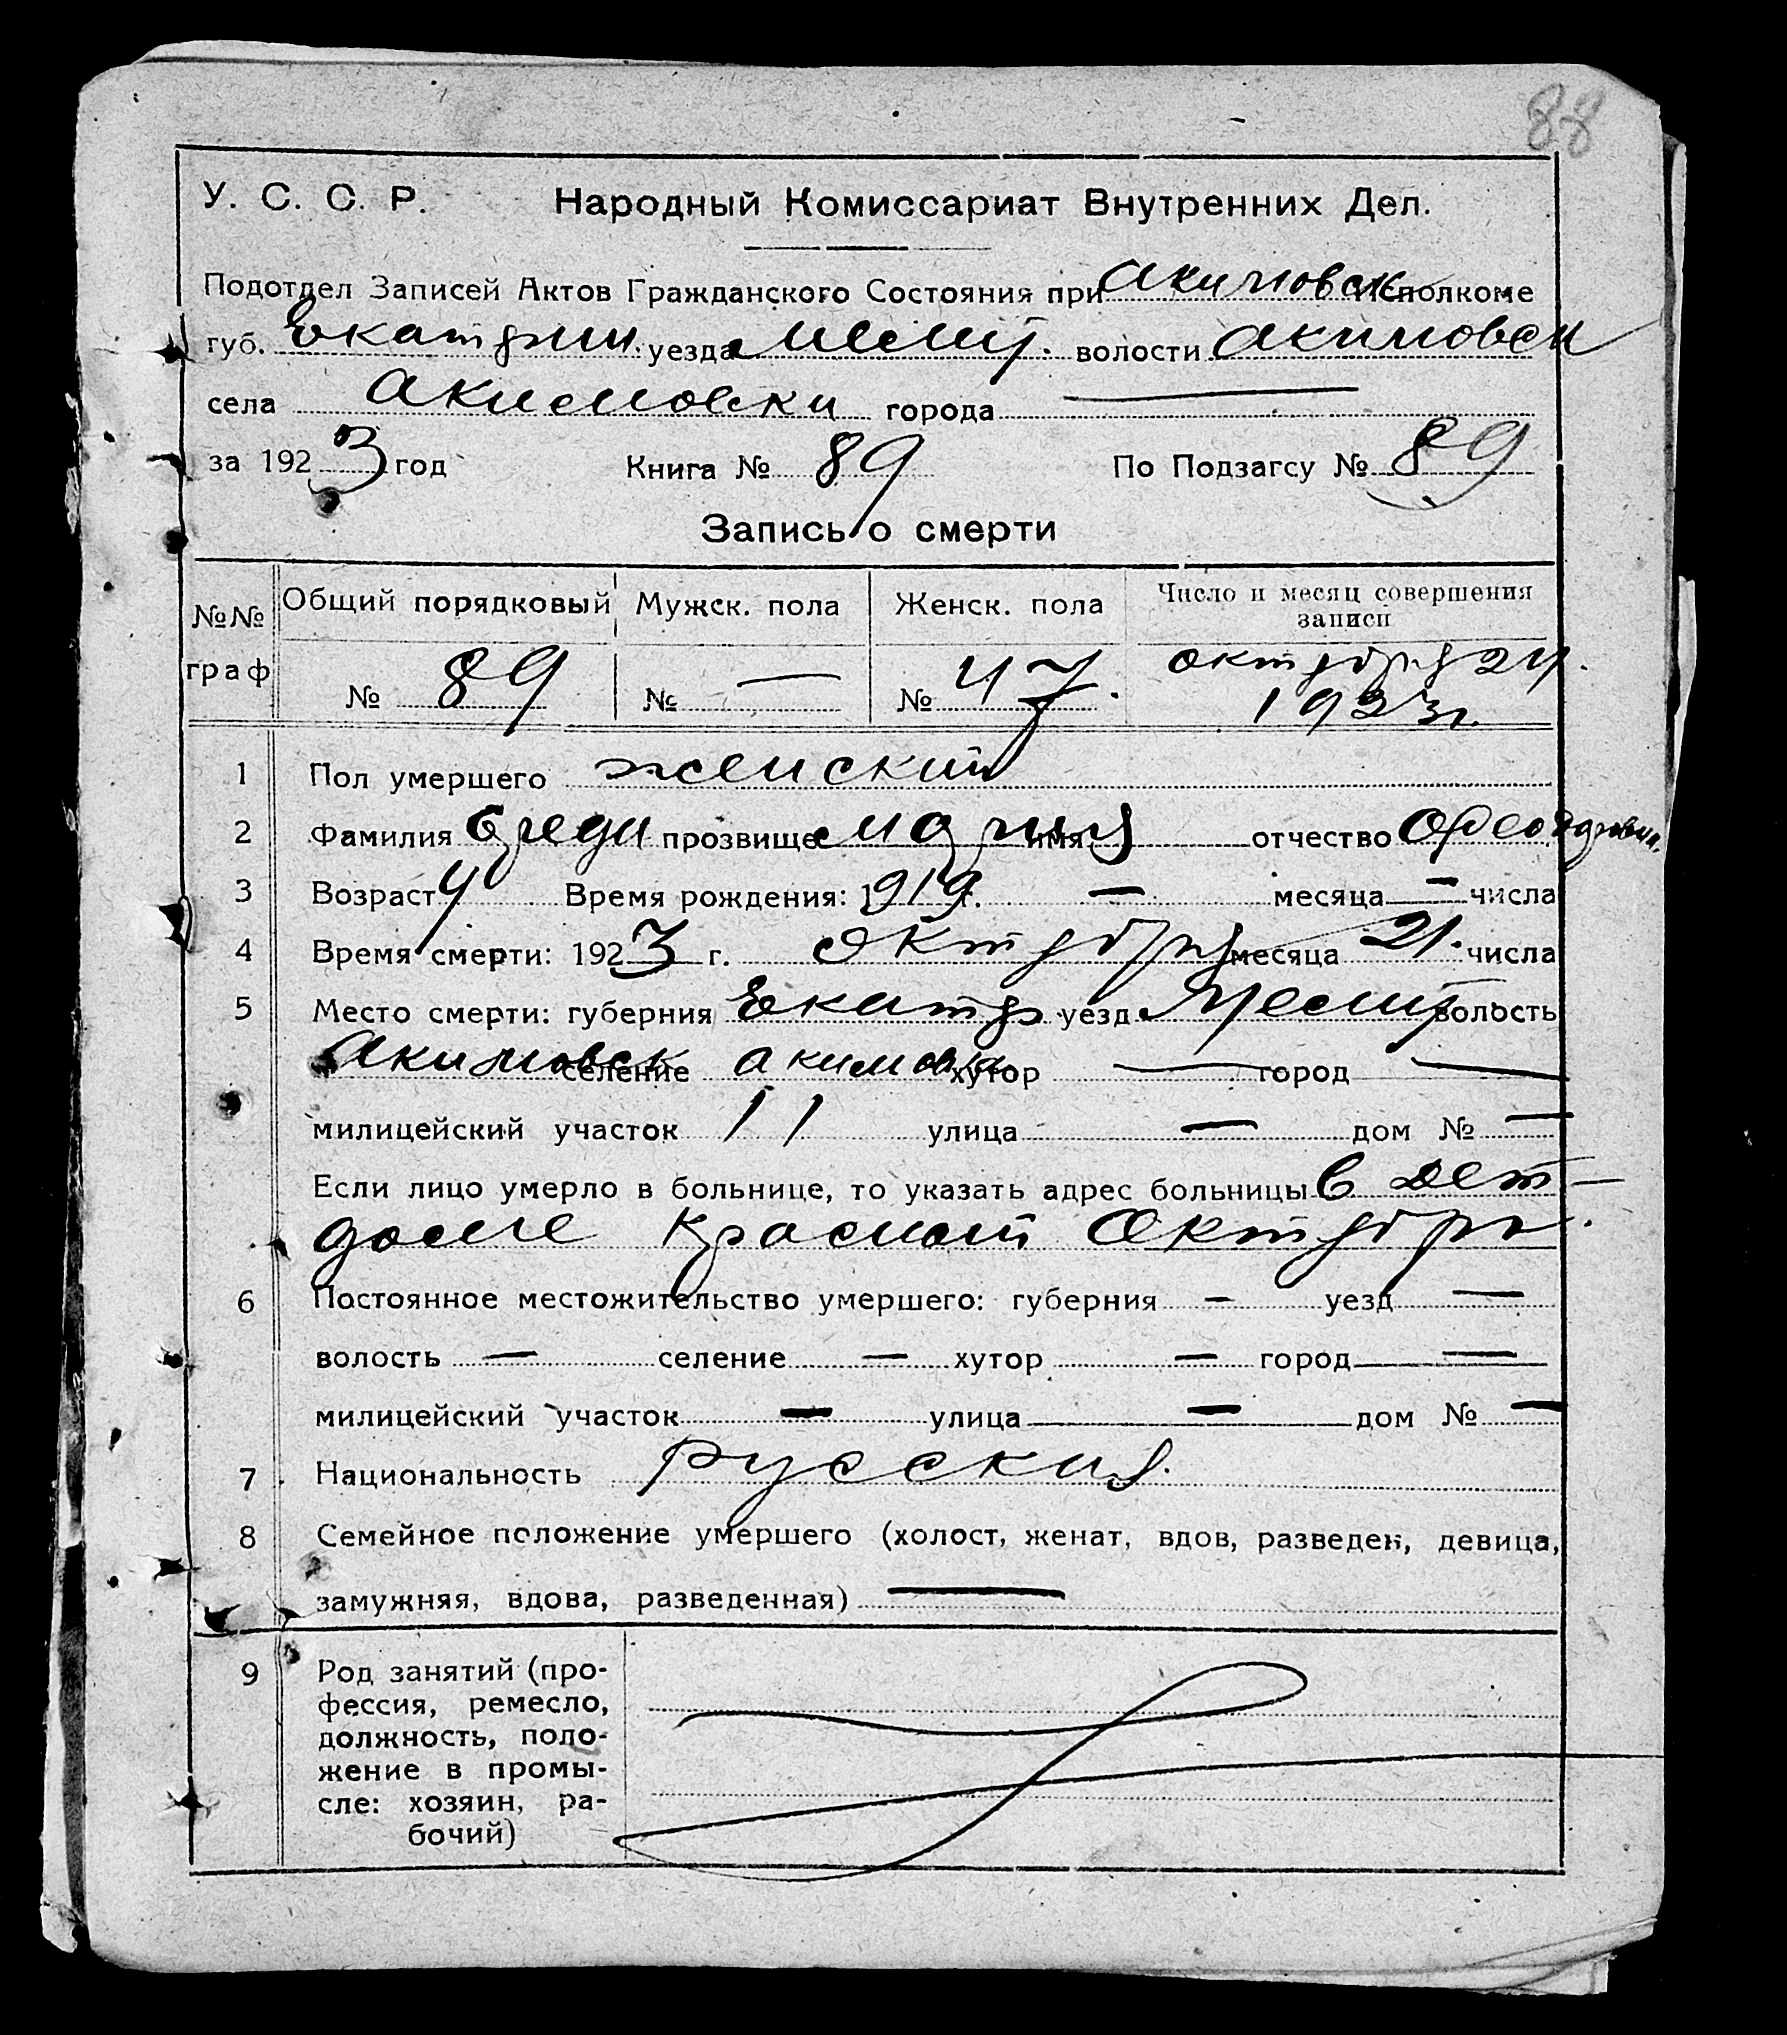 88
У. С. С. Р. Народный Комиссариат Внутренних Дел.
Подотдел Записей Актов Гражданского Состояния при Акимовск Исполкоме
губ. Екатерин. уезда Мелит. волости Акимовск
села Акимовки города —
за 1923 год Книга № 89 По Подзагсу № 89
Запись о смерти
№№ граф Общий порядковый Мужск. пола Женск. пола Число и месяц совершения записи
№ 89 № — № 47. октября 24. 1923 г.
1 Пол умершего женский
2 Фамилия прозвище Мария имя отчество
3 Возраст 4 Время рождения: 1919 г. — месяца — числа
4 Время смерти: 1923 г. Октября месяца 21. числа
5 Место смерти: губерния Екатер уезд Мелит волость
Акимовск селение Акимовка хутор — город —
милицейский участок 11 улица — дом № —
Если лицо умерло в больнице, то указать адрес больницы В Дет-
доме Красный Октябрь.
6 Постоянное местожительство умершего: губерния — уезд —
волость — селение — хутор — город —
милицейский участок — улица — дом № —
7 Национальность Русская.
8 Семейное положение умершего (холост, женат, вдов, разведен, девица,
замужняя, вдова, разведенная) —
9 Род занятий (про-
фессия, ремесло,
должность, поло-
жение в промы-
сле: хозяин, ра-
бочий)